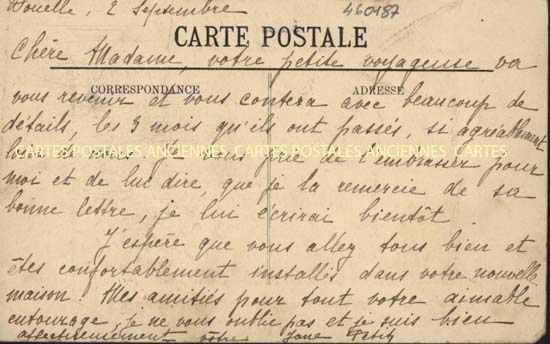 2 Septembre
460187
CARTE POSTALE
Chère Madame, votre petite voyageuse va
CORRESPONDANCE ADRESSE
vous revenir et vous contera avec beaucoup de
détails, les 3 mois qu'ils ont passés, si agréablement
CARTES POSTALES ANCIENNES CARTES POSTALES ANCIENNES CARTES
je vous prie de l'embrasser pour
moi et de lui dire, que je la remercie de sa
bonne lettre, je lui écrirai bientôt.
J'espère que vous allez tous bien et
êtes confortablement installés dans votre nouvelle
maison! Mes amitiés pour tout votre aimable
entourage, je ne vous oublie pas et je suis bien
affectueusement vôtre Jane Petit